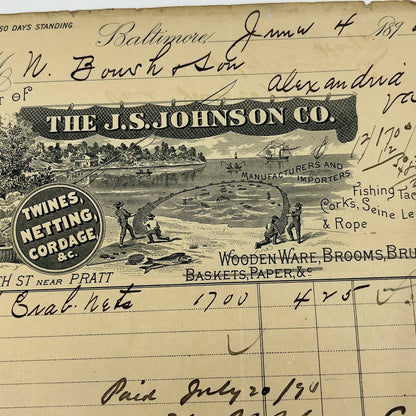 50 DAYS STANDING.
Baltimore, June 4 189
N. Boush & Son
Alexandria
Va
OF
THE J.S. JOHNSON CO.
MANUFACTURERS AND
IMPORTERS
TWINES,
NETTING,
CORDAGE,
&C.
FISHING TAC
CORKS, SEINE LE
& ROPE
WOODEN WARE, BROOMS, BRU
BASKETS, PAPER, &c
TH ST NEAR PRATT
Crab Nets 1700 4 25
Paid July 20/90